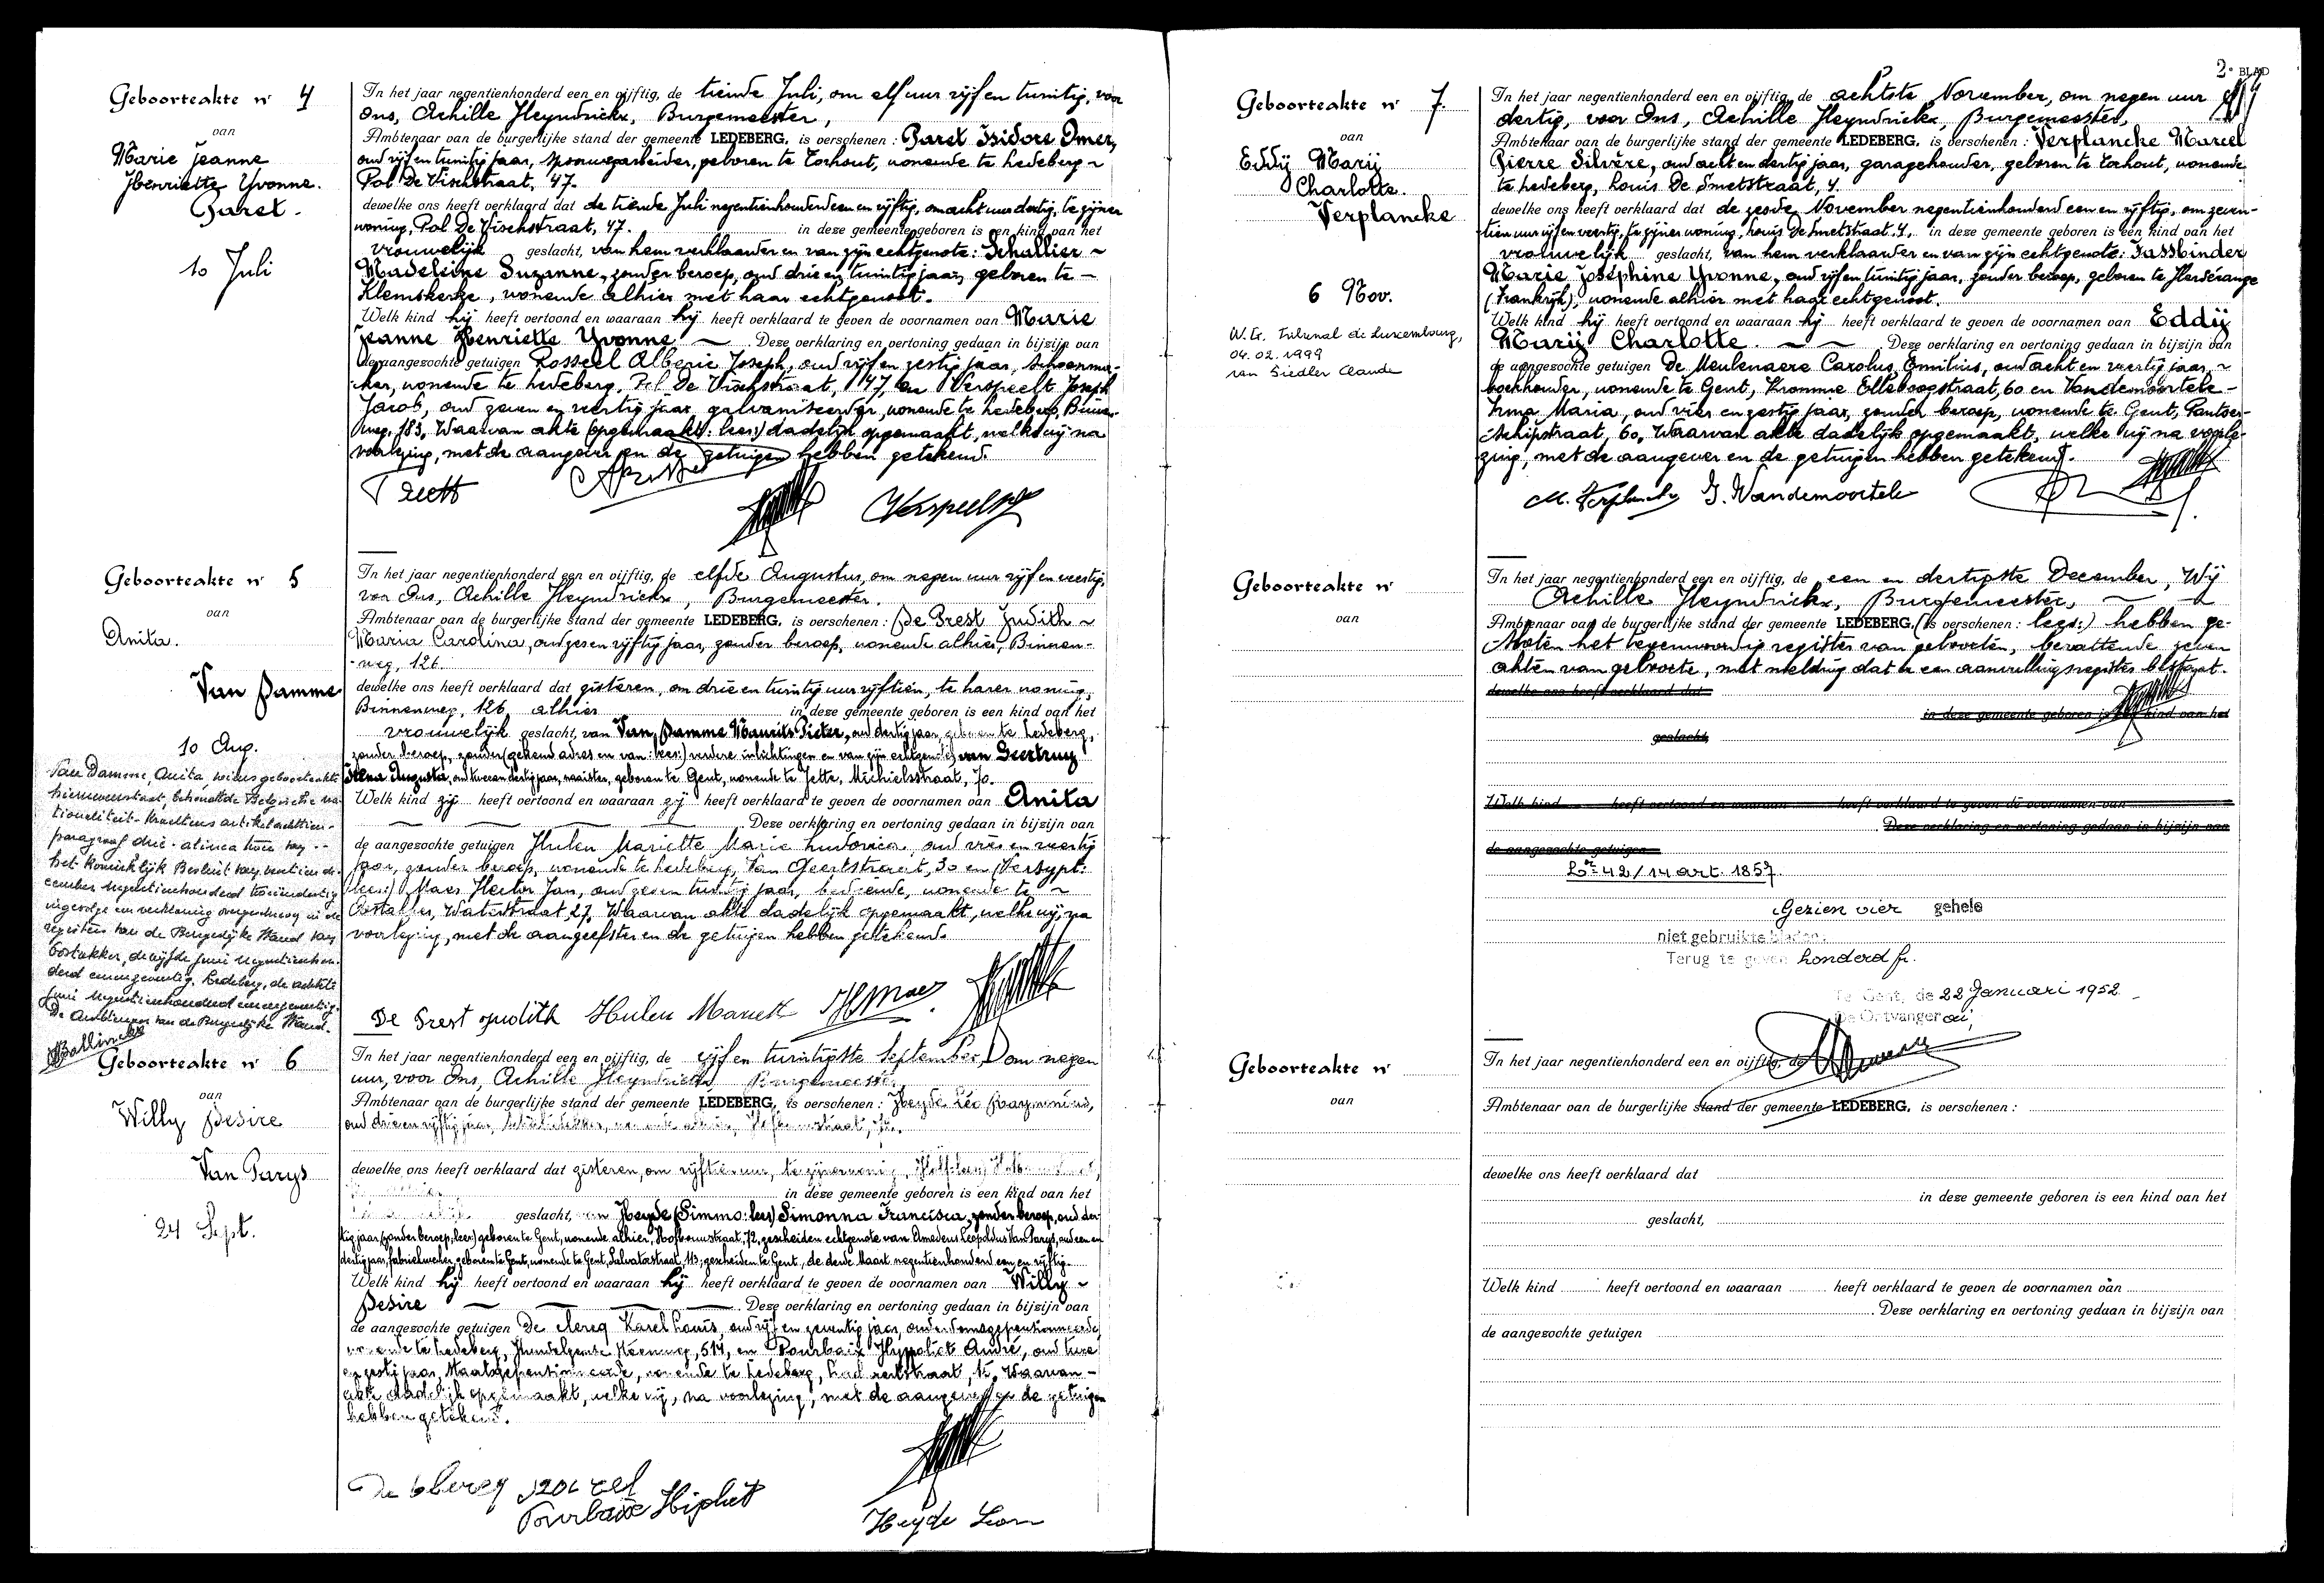 Geboorteakte nr 4
van
Marie Jeanne
Henriette Yvonne.
Paret.
10 Juli
In het jaar negentienhonderd een en vijftig, de tiende Juli, om elf uur vijf en twintig, voor
Ons, Achille Heyndrickx, Burgemeester,
Ambtenaar van de burgerlijke stand der gemeente LEDEBERG, is verschenen : Paret Isidore Omer,
oud vijf en twintig jaar, spoorwegarbeider, geboren te Torhout, wonende te Ledeberg
Pol De Vischstraat, 47.
dewelke ons heeft verklaard dat de tiende Juli negentienhonderd een en vijftig, om acht uur dertig, te zijner
woning, Pol De Vischstraat, 47. in deze gemeente geboren is een kind van het
vrouwelijk geslacht, van hem verklaarder en van zijn echtgenote : Schallier
Madeleine Suzanne, zonder beroep, oud drie en twintig jaar, geboren te
Klemskerke, wonende alhier met haar echtgenoot.
Welk kind hij heeft vertoond en waaraan hij heeft verklaard te geven de voornamen van Marie
Jeanne Henriette Yvonne. Deze verklaring en vertoning gedaan in bijzijn van
de aangezochte getuigen Rosseel Alberic Joseph, oud vijf en zestig jaar, schoenma-
ker, wonende te Ledeberg, Pol De Vischstraat, 147, en Verspeelt Joseph
Jacob, oud zeven en veertig jaar, galvaniseerder, wonende te Ledeberg, Binnen-
weg, 183. Waarvan akte (opgemaakt: lees:) dadelijk opgemaakt, welke wij na
voorlezing, met de aangever en de getuigen hebben getekend.
Geboorteakte nr 5
van
Anita.
Van Damme
10 Aug.
Van Damme, Anita, wier geboorteakte
hiernevenstaat, behoudt de Belgische na-
tionaliteit - krachtens artikel achttien -
paragraaf drie - alinea twee van
het Koninklijk Besluit van veertien de-
cember negentienhonderd tweeëndertig
ingevolge een verklaring overgeschreven in de
registers van de Burgerlijke Stand van
Oostakker, de vijfde juni negentienhon-
derd eenenzeventig. Ledeberg, de achtste
juni negentienhonderd eenenzeventig.
De Ambtenaar van de Burgerlijke Stand.
In het jaar negentienhonderd een en vijftig, de elfde Augustus, om negen uur vijf en veertig,
voor Ons, Achille Heyndrickx, Burgemeester.
Ambtenaar van de burgerlijke stand der gemeente LEDEBERG, is verschenen : De Prest Judith
Maria Carolina, oud zes en vijftig jaar, zonder beroep, wonende alhier, Binnen-
weg, 126.
dewelke ons heeft verklaard dat gisteren, om drie en twintig uur vijftien, te harer woning,
Binnenweg, 126 alhier in deze gemeente geboren is een kind van het
vrouwelijk geslacht, van Van Damme Maurits Pieter, oud dertig jaar, geboren te Ledeberg,
zonder beroep, zonder (gekend adres en van : lees:) verdere inlichtingen en van zijn echtgenote van Geertruy
Elena Augusta, oud twee en dertig jaar, naaister, geboren te Gent, wonende te Jette, Michielsstraat, 70.
Welk kind zij heeft vertoond en waaraan zij heeft verklaard te geven de voornamen van Anita
Deze verklaring en vertoning gedaan in bijzijn van
de aangezochte getuigen Hulen Mariette Marie Ludovica, oud vier en veertig
jaar, zonder beroep, wonende te Ledeberg, Van Geertstraat, 30 en (Versypt:
lees:) Maes Hector Jan, oud zeven twintig jaar, bediende, wonende te
Oostakker, Waterstraat 27. Waarvan akte dadelijk opgemaakt, welke wij, na
voorlezing, met de aangeefster en de getuigen hebben getekend.
De Prest Judith Hulen Mariett H Maes
Geboorteakte nr 6
van
Willy Desire
Van Parys
24 Sept.
In het jaar negentienhonderd een en vijftig, de vijf en twintigste September, om negen
uur, voor Ons, Achille Heyndrickx, Burgemeester,
Ambtenaar van de burgerlijke stand der gemeente LEDEBERG, is verschenen : Heyde Léo Raymond,
oud drie en vijftig jaar,
dewelke ons heeft verklaard dat gisteren, om vijftien uur, te zijner woning,
in deze gemeente geboren is een kind van het
geslacht, van Heyde (Simmo: lees) Simonna Francisca, zonder beroep, oud der-
tig jaar (zonder beroep, lees:) geboren te Gent, wonende alhier, Hofbouwstraat, 72, gescheiden echtgenote van Amedeus Leopoldus Van Parys, oud een en
dertig jaar, fabriekwerker, geboren te Gent, wonende te Gent, Salvatorstraat, 113; gescheiden te Gent, de derde Maart negentienhonderd een en vijftig.
Welk kind hij heeft vertoond en waaraan hij heeft verklaard te geven de voornamen van Willy
Desire Deze verklaring en vertoning gedaan in bijzijn van
de aangezochte getuigen De Clercq Karel Louis, oud vijf en zeventig jaar, ouderdomsgepensioneerde,
wonende te Ledeberg, Hundelgemse Steenweg, 514, en Pourbaix Hyppoliet André, oud twee
en zestig jaar, Staatsgepensioneerde, wonende te Ledeberg, Waarvan
akte dadelijk opgemaakt, welke wij, na voorlezing, met de aangever en de getuigen
hebben getekend.
Pourbaix Hipoliet
Heyde Leon
2e BLAD
Geboorteakte nr 7.
van
Eddij Marij
Charlotte.
Verplancke
6 Nov.
W.G. Tribunal de Luxembourg,
04.02.1999
van Siedler Claude
In het jaar negentienhonderd een en vijftig, de achtste November, om negen uur
dertig, voor Ons, Achille Heyndrickx, Burgemeester,
Ambtenaar van de burgerlijke stand der gemeente LEDEBERG, is verschenen : Verplancke Marcel
Pierre Silvère, oud acht en dertig jaar, garagehouder, geboren te Torhout, wonende
te Ledeberg, Louis De Smetstraat, 4.
dewelke ons heeft verklaard dat de zesde November negentienhonderd een en vijftig, om zeven-
tien uur vijf en veertig, te zijner woning, Louis De Smetstraat, 4. in deze gemeente geboren is een kind van het
vrouwelijk geslacht, van hem verklaarder en van zijn echtgenote : Fassbinder
Marie Joséphine Yvonne, oud vijf en twintig jaar, zonder beroep, geboren te Herserange
(Frankrijk), wonende alhier met haar echtgenoot.
Welk kind hij heeft vertoond en waaraan hij heeft verklaard te geven de voornamen van Eddij
Marij Charlotte. Deze verklaring en vertoning gedaan in bijzijn van
de aangezochte getuigen De Meulenaere Carolus Emilius, oud acht en veertig jaar,
boekhouder, wonende te Gent, Kromme Elleboogstraat, 60 en Vandemoortele
Irma Maria, oud vier en zestig jaar, zonder beroep, wonende te Gent, Pantser-
schipstraat, 60. Waarvan akte dadelijk opgemaakt, welke wij na voorle-
zing, met de aangever en de getuigen hebben getekend.
M. Verplancke I. Vandemoortele
Geboorteakte nr
van
In het jaar negentienhonderd een en vijftig, de een en dertigste December, Wij
Achille Heyndrickx, Burgemeester,
Ambtenaar van de burgerlijke stand der gemeente LEDEBERG, (is verschenen : lees:) hebben ge-
sloten het tegenwoordig register van geboorten, bevattende zeven
akten van geboorte, met melding dat er een aanvullingsregister bestaat.
dewelke ons heeft verklaard dat
in deze gemeente geboren is een kind van het
geslacht,
Welk kind heeft vertoond en waaraan heeft verklaard te geven de voornamen van
Deze verklaring en vertoning gedaan in bijzijn van
de aangezochte getuigen
42/14 art. 1857.
Gezien vier gehele
niet gebruikte bladen.
Terug te geven honderd fr.
Te Gent, de 22 Januari 1952
De Ontvanger
Geboorteakte nr
van
In het jaar negentienhonderd een en vijftig, de
Ambtenaar van de burgerlijke stand der gemeente LEDEBERG, is verschenen :
dewelke ons heeft verklaard dat
in deze gemeente geboren is een kind van het
geslacht,
Welk kind heeft vertoond en waaraan heeft verklaard te geven de voornamen van
Deze verklaring en vertoning gedaan in bijzijn van
de aangezochte getuigen